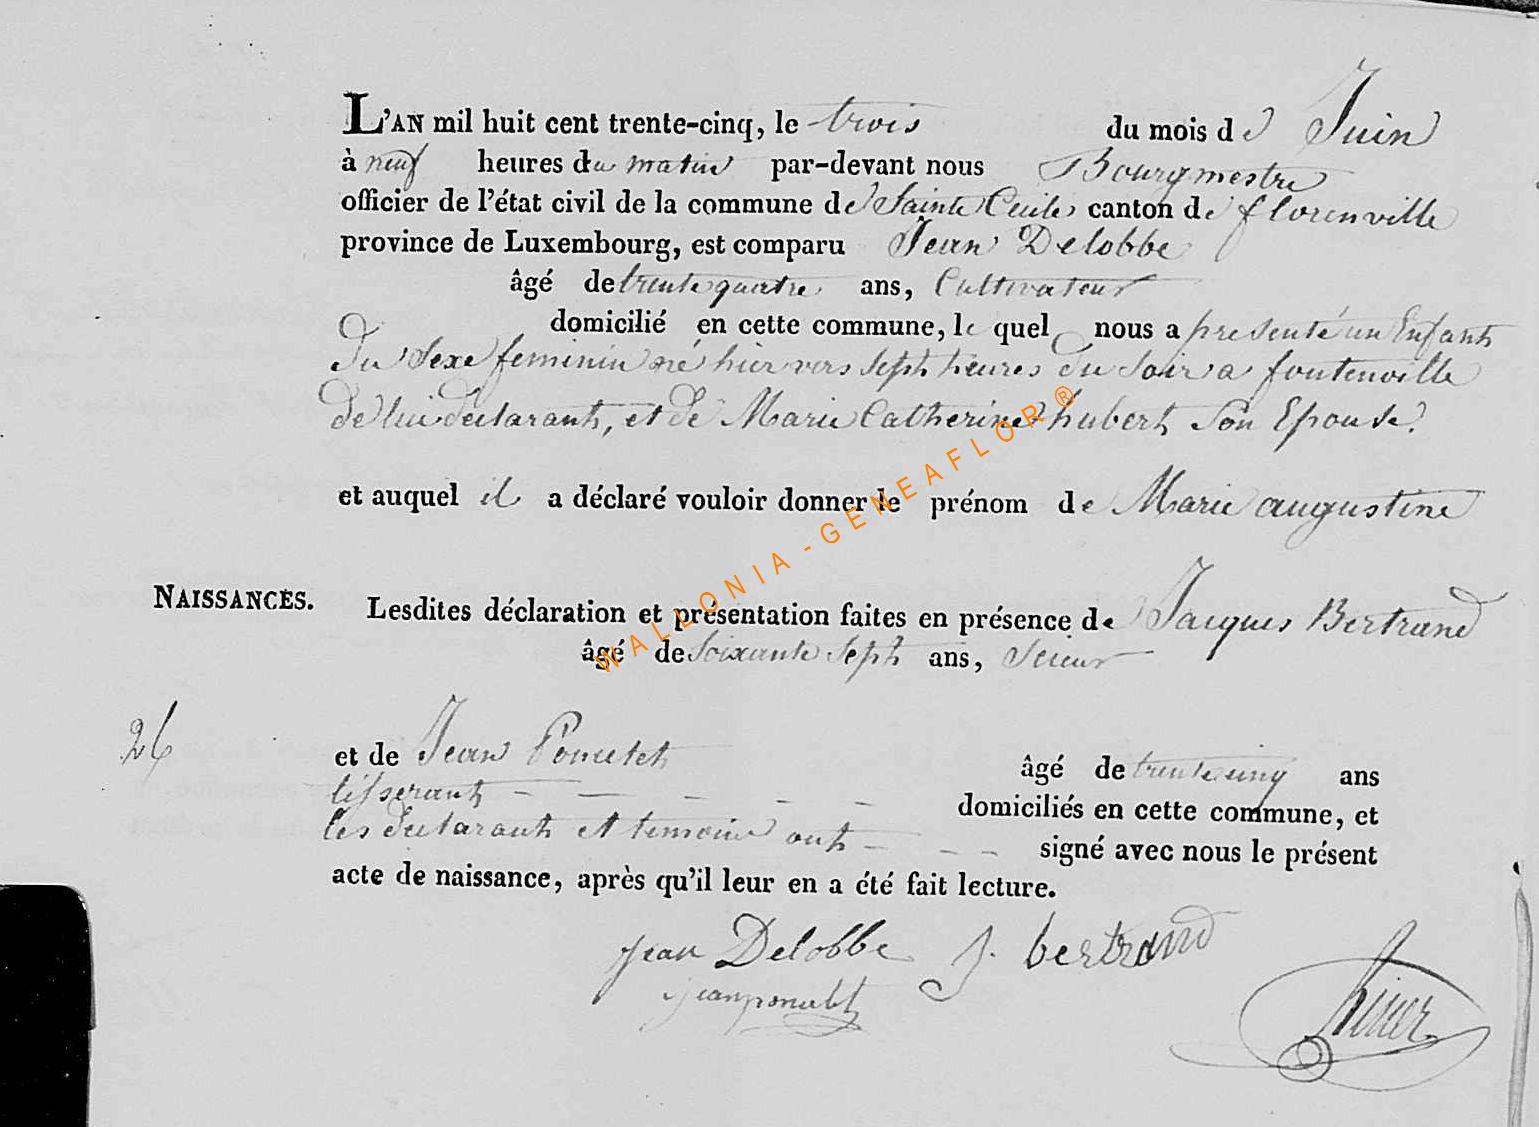 L'AN mil huit cent trente-cinq, le trois du mois de Juin
à neuf heures du matin par-devant nous Bourgmestre
officier de l'état civil de la commune de Sainte Cecile canton de florenville
province de Luxembourg, est comparu Jean Delobbe
âgé de trente quatre ans, Cultivateur
domicilié en cette commune, le quel nous a presenté un Enfant
du Sexe feminin né hier vers Sept heures du Soir a fontenoille
de lui declarant, et de Marie Catherine hubert Son Epouse.
et auquel il a déclaré vouloir donner le prénom de Marie augustine
NAISSANCES.
Lesdites déclaration et présentation faites en présence de Jacques Bertrand
âgé de Soixante Sept ans, Scieur
26
et de Jean Poncelet âgé de trente cinq ans
tisserant domiciliés en cette commune, et
les declarant et temoins ont signé avec nous le présent
acte de naissance, après qu'il leur en a été fait lecture.
Jean Delobbe J. bertrand
jean poncelet
WALLONIA-GENEAFLOR®